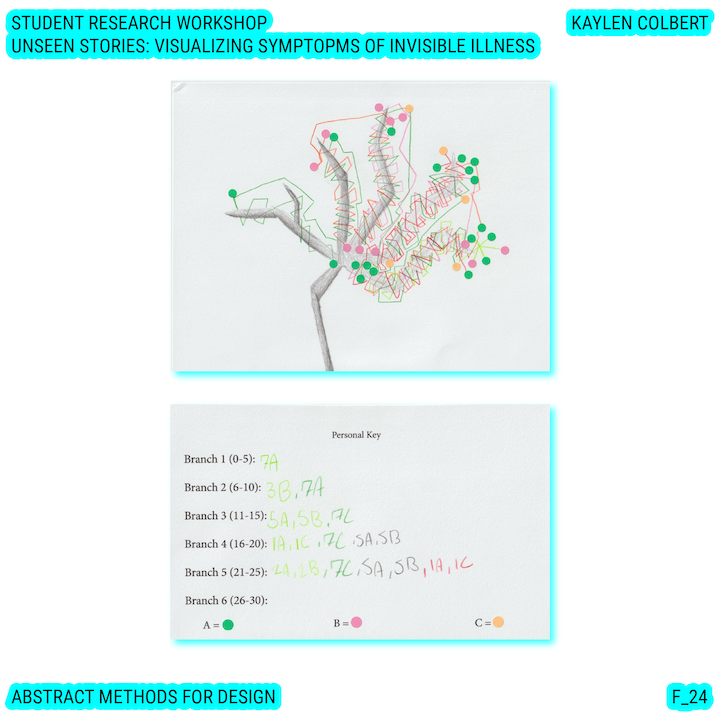 STUDENT RESEARCH WORKSHOP
KAYLEN COLBERT
UNSEEN STORIES: VISUALIZING SYMPTOPMS OF INVISIBLE ILLNESS
Personal Key
Branch 1 (0-5): 7A
Branch 2 (6-10): 3B, 7A
Branch 3 (11-15): 5A, 5B, 7C
Branch 4 (16-20): 1A, 1C, 7C, 5A, 5B
Branch 5 (21-25): 2B, 7C, 5A, 5B, 1A, 1C
Branch 6 (26-30):
A =
B =
C =
ABSTRACT METHODS FOR DESIGN
F_24